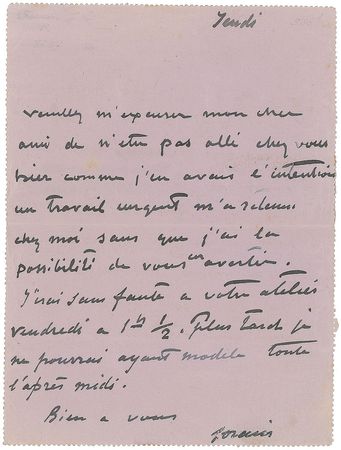 Jeudi
veuillez m'excuser mon cher
ami de n'être pas allé chez vous
hier comme j'en avais l'intention
un travail urgent m'a retenu
chez moi sans que j'ai la
possibilité de vous en avertir.
J'irai sans faute a votre atelier
vendredi a 1h 1/2. Plus tard je
ne pourrai ayant modele toute
l'après midi.
Bien a vous